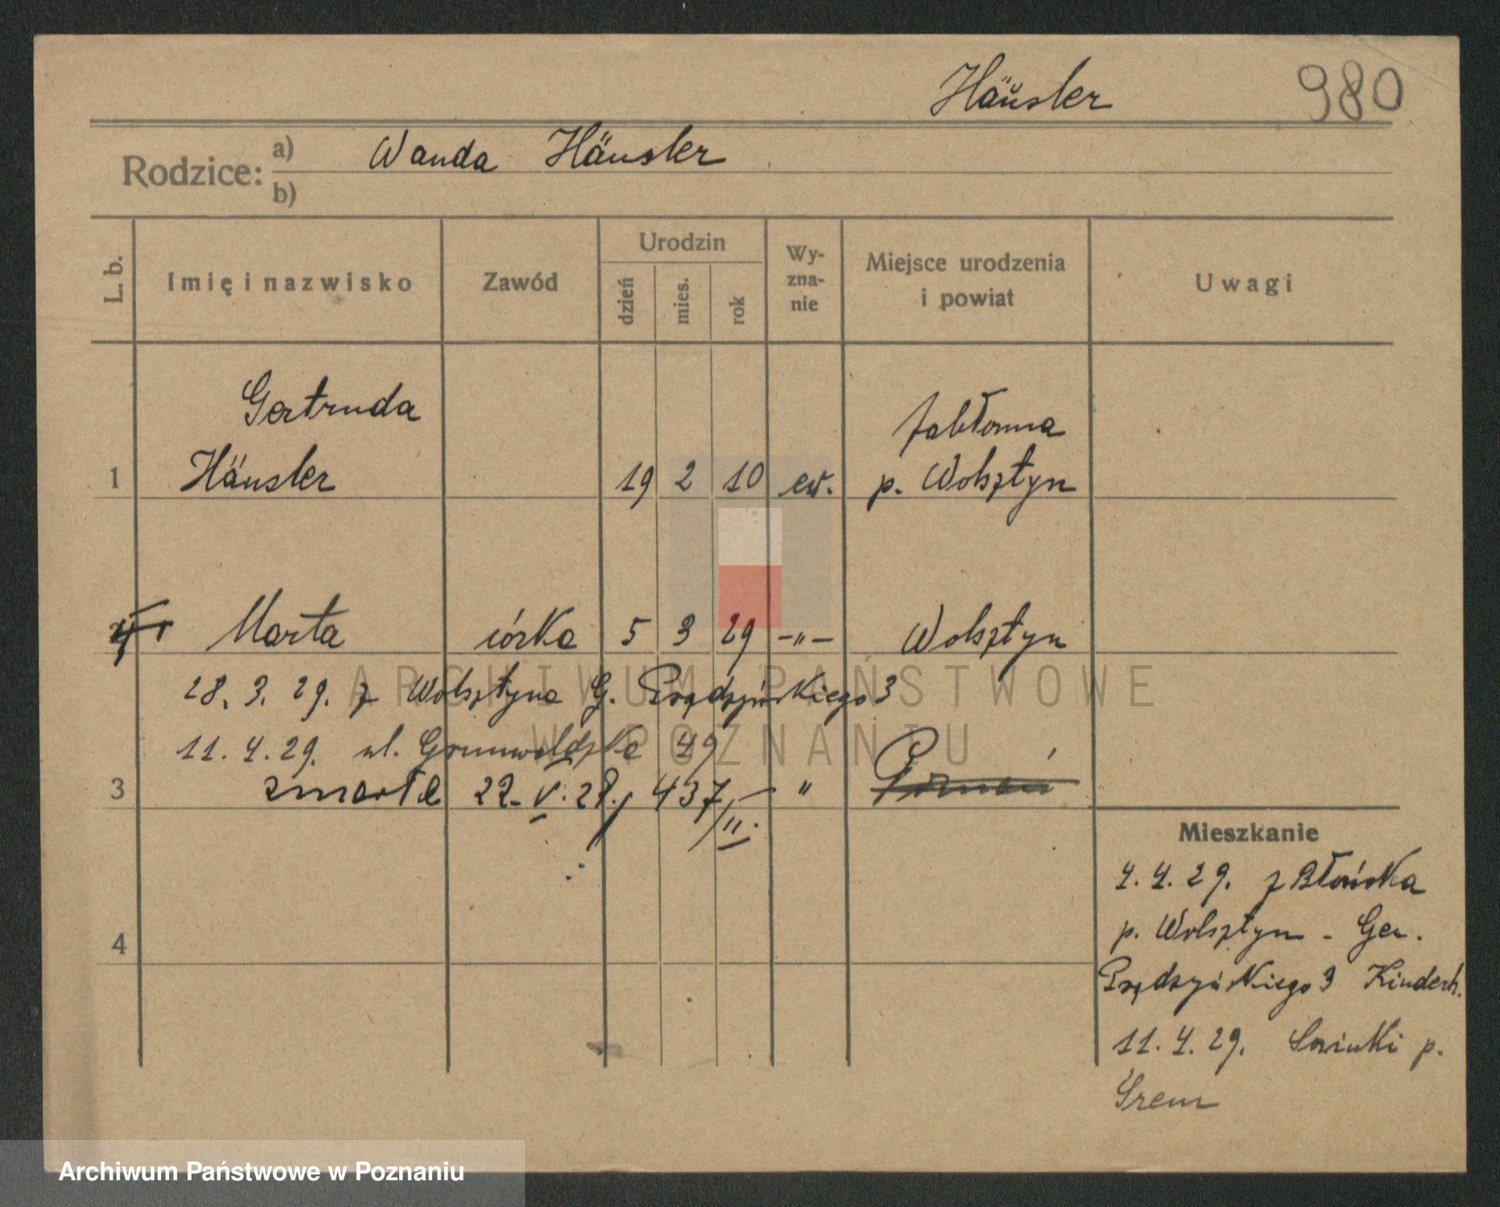 Häusler 980
Rodzice: a) Wanda Häusler
b)
L. b. Imię i nazwisko Zawód Urodzin dzień mies. rok Wy-zna-nie Miejsce urodzenia i powiat Uwagi
Gertruda Jabłonna
1 Häusler 19 2 10 ew. p. Wolsztyn
Marta córka 5 3 29 -"- Wolsztyn
28. 3. 29. z Wolsztyna G. Prądzyńskiego 3
11. 4. 29. ul. Grunwaldzka 49
3 zmarła 22. V. 29. 437/II. " Poznań
Mieszkanie
4. 4. 29. z Błońska
p. Wolsztyn - Gen.
4
Prądzyńskiego 3 Kinderh.
11. 4. 29. p.
Śrem
ARCHIWUM PAŃSTWOWE
W POZNANIU
Archiwum Państwowe w Poznaniu